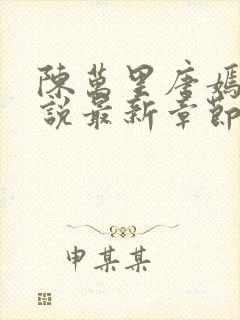 陳萬里唐嫣
說最新章節
申某某